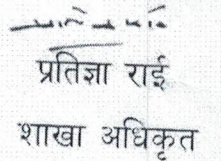 प्रतिज्ञा राई
शाखा अधिकृत